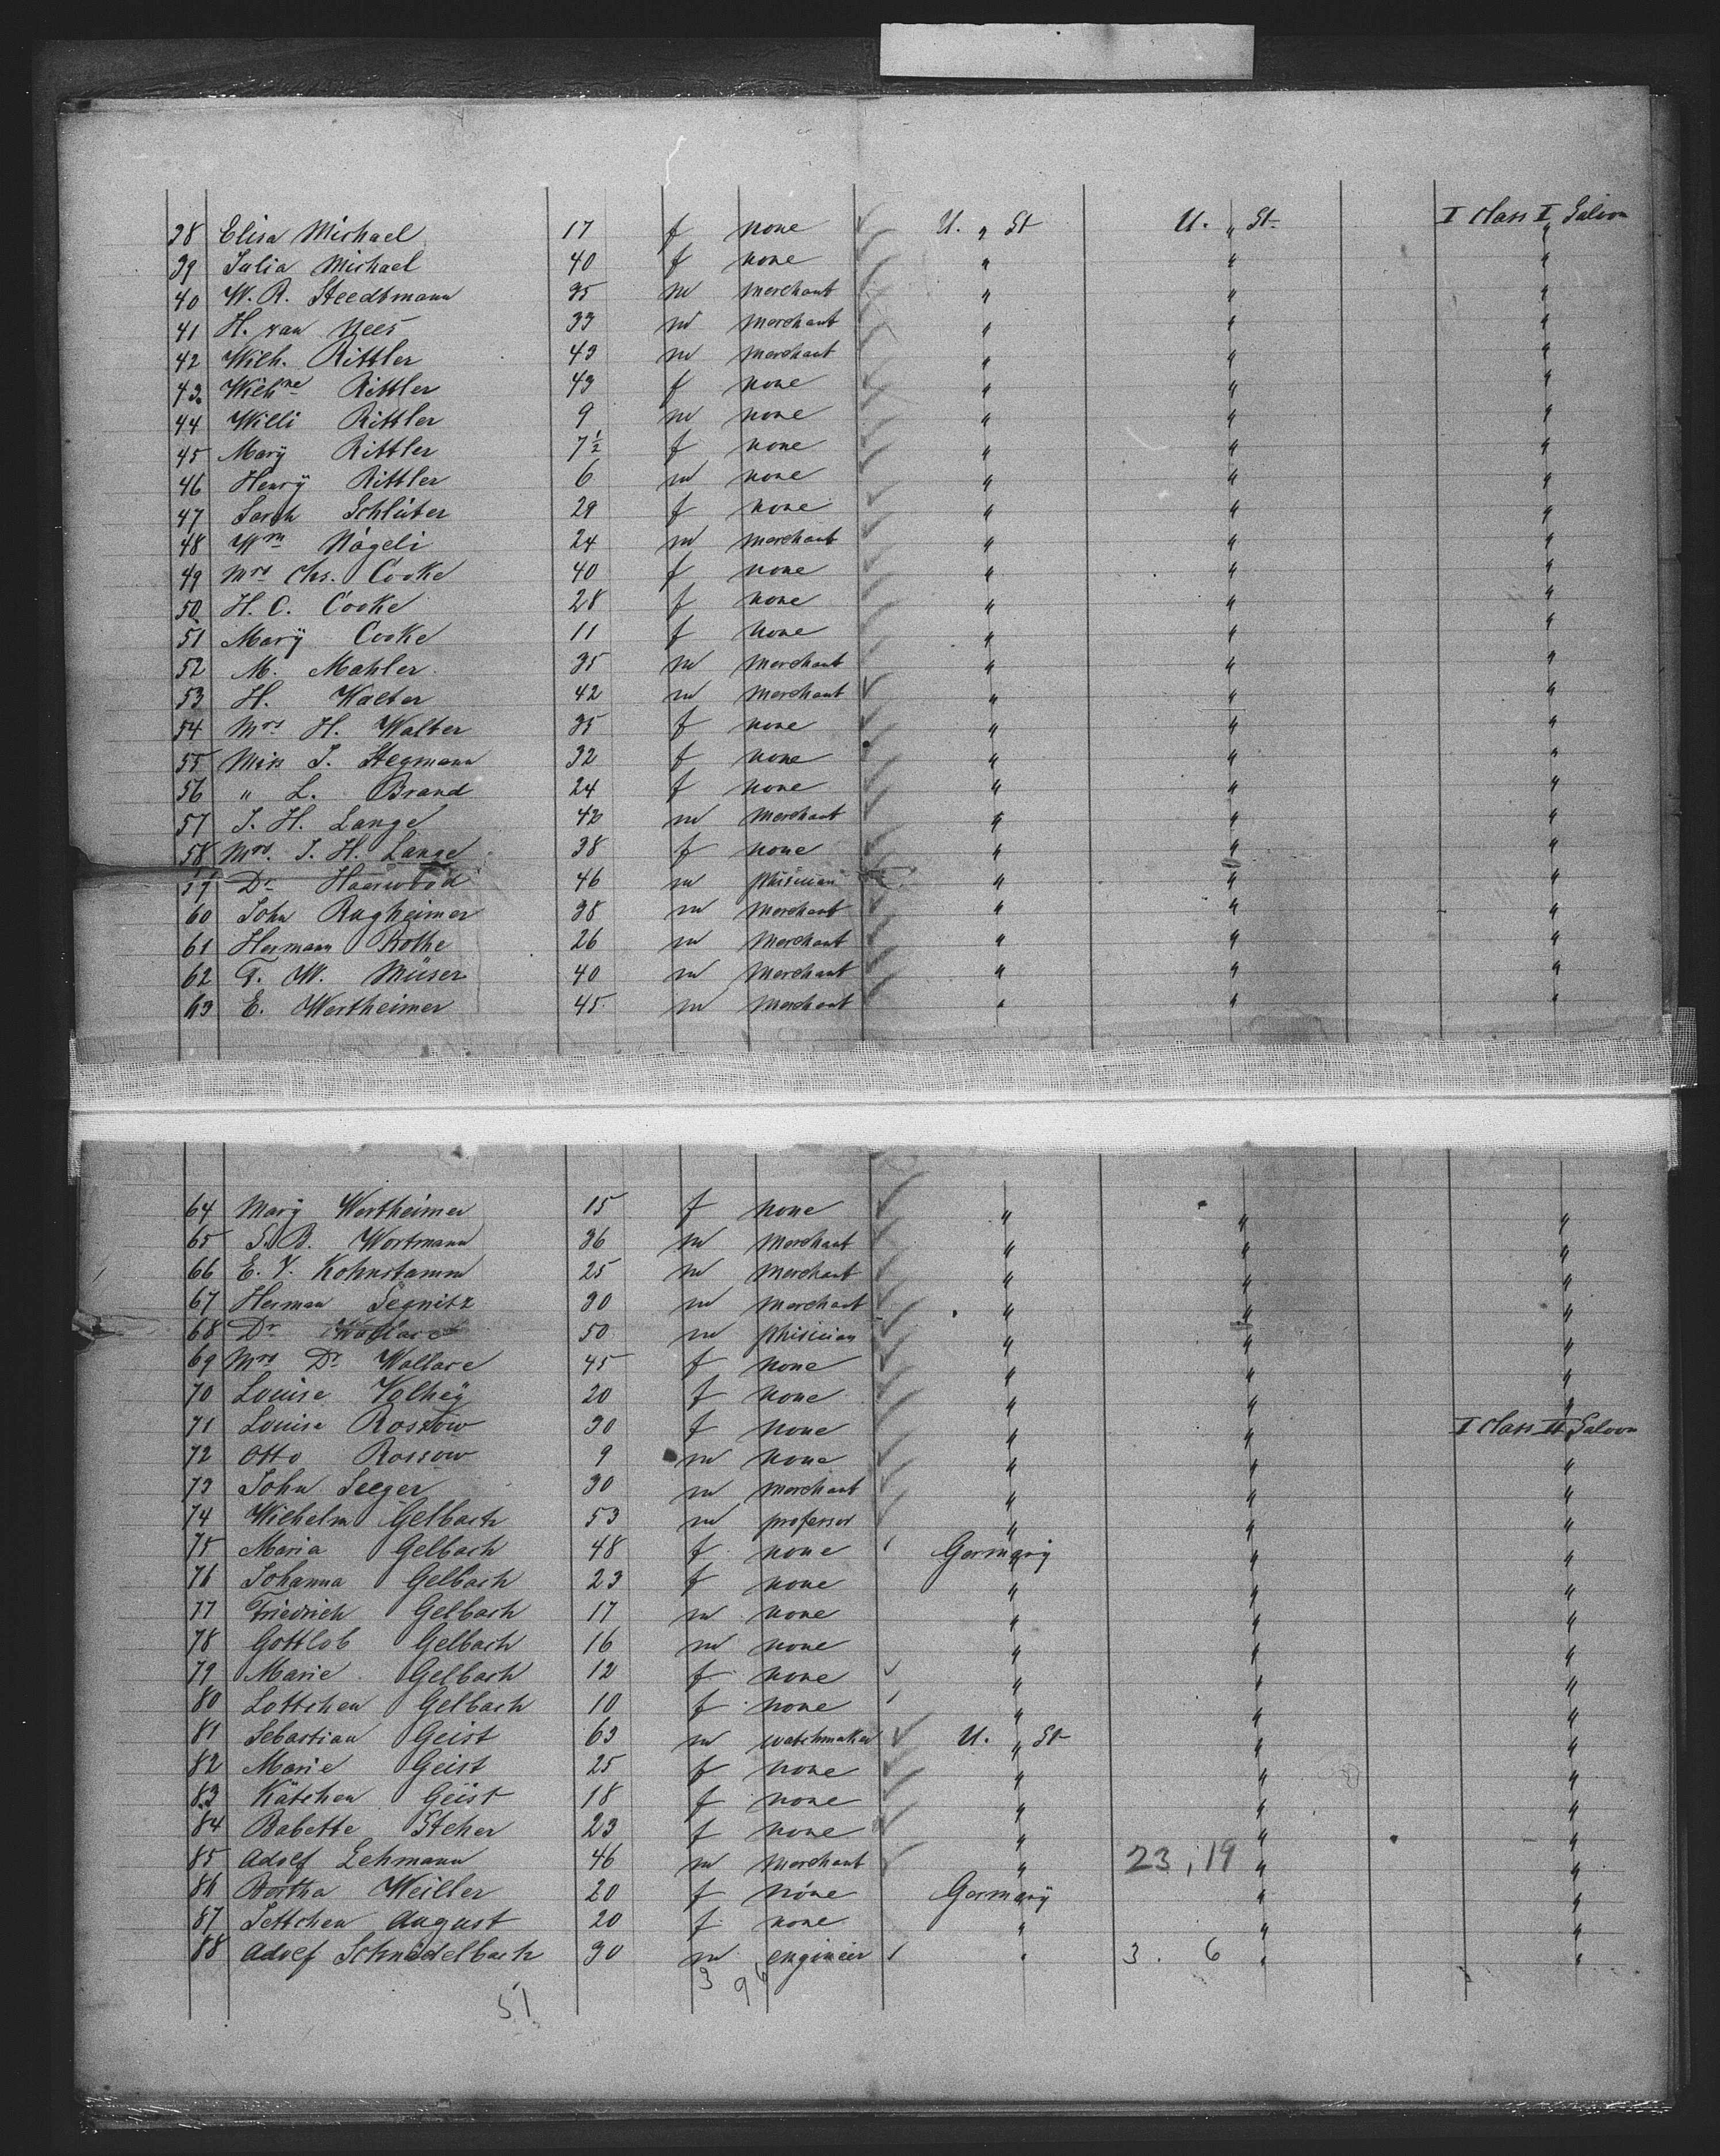 38 Elisa Michael 17 f none U. " St U. " St. I class I Saloon "
39 Julia Michael 40 f none " " "
40 W. R. Steedtmann 35 m merchant " " "
41 H. van Nees 33 m merchant " " "
42 Wilh. Rittler 43 m merchant " " "
43. Wilhne Rittler 43 f none " " "
44 Willi Rittler 9 m none " " "
45 Marÿ Rittler 7 1/2 f none " " "
46 Henrÿ Rittler 6 m none " " "
47 Sarah Schlüter 29 f none " " "
48 Wm Nägeli 24 m merchant " " "
49 Mrs Chs. Cooke 40 f none " " "
50 H. C. Cooke 28 f none " " "
51 Marÿ Cooke 11 f none " " "
52 M. Mahler 35 m merchant " " "
53 H. Walter 42 m merchant " " "
54 Mrs H. Walter 35 f none " " "
55 Miss J. Stegmann 32 f none " " "
56 " L. Brand 24 f none " " "
57 J. H. Lange 42 m merchant " " "
58 Mrs. J. H. Lange 38 f none " " "
59 Dr Haarwood 46 m phisician " " "
60 John Rugheimer 38 m merchant " " "
61 Hermann Rothe 26 m merchant " " "
62 F. W. Müser 40 m merchant " " "
63 E. Wertheimer 45 m merchant " " "
64 Marÿ Wertheimer 15 f none " " "
65 S. B. Wortmann 36 m merchant " " "
66 E. V. Kohnstamm 25 m merchant " " "
67 Herman Segnitz 30 m merchant " " "
68 Dr Wallace 50 m phisician " " "
69 Mrs Dr Wallace 45 f none " " "
70 Louise Volheÿ 20 f none " " "
71 Louise Rossow 30 f none " " I class II Saloon
72 Otto Rossow 9 m none " " "
73 John Seeger 30 m merchant " " "
74 Wilhelm Gelbach 53 m professor " " "
75 Maria Gelbach 48 f none Germanÿ " "
76 Johanna Gelbach 23 f none " " "
77 Friedrich Gelbach 17 m none " " "
78 Gottlob Gelbach 16 m none " " "
79 Marie Gelbach 12 f none " " "
80 Lottchen Gelbach 10 f none " " "
81 Sebastian Geist 63 m watchmaker U. " St " "
82 Marie Geist 25 f none " " "
83 Kätchen Geist 18 f none " " "
84 Babette Steher 23 f none " " "
85 Adolf Lehmann 46 m merchant " 23, 19 " "
86 Bertha Weiller 20 f none Germanÿ " "
87 Jettchen August 20 f none " " "
88 Adolf Schnadelbach 30 m engineer " 3. 6 " "
3 96
51